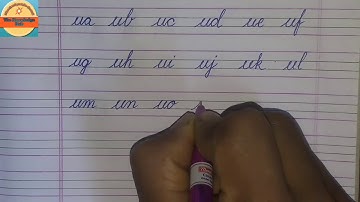 ua ub uc ud ue uf
ug uh ui uj uk ul
um un uo